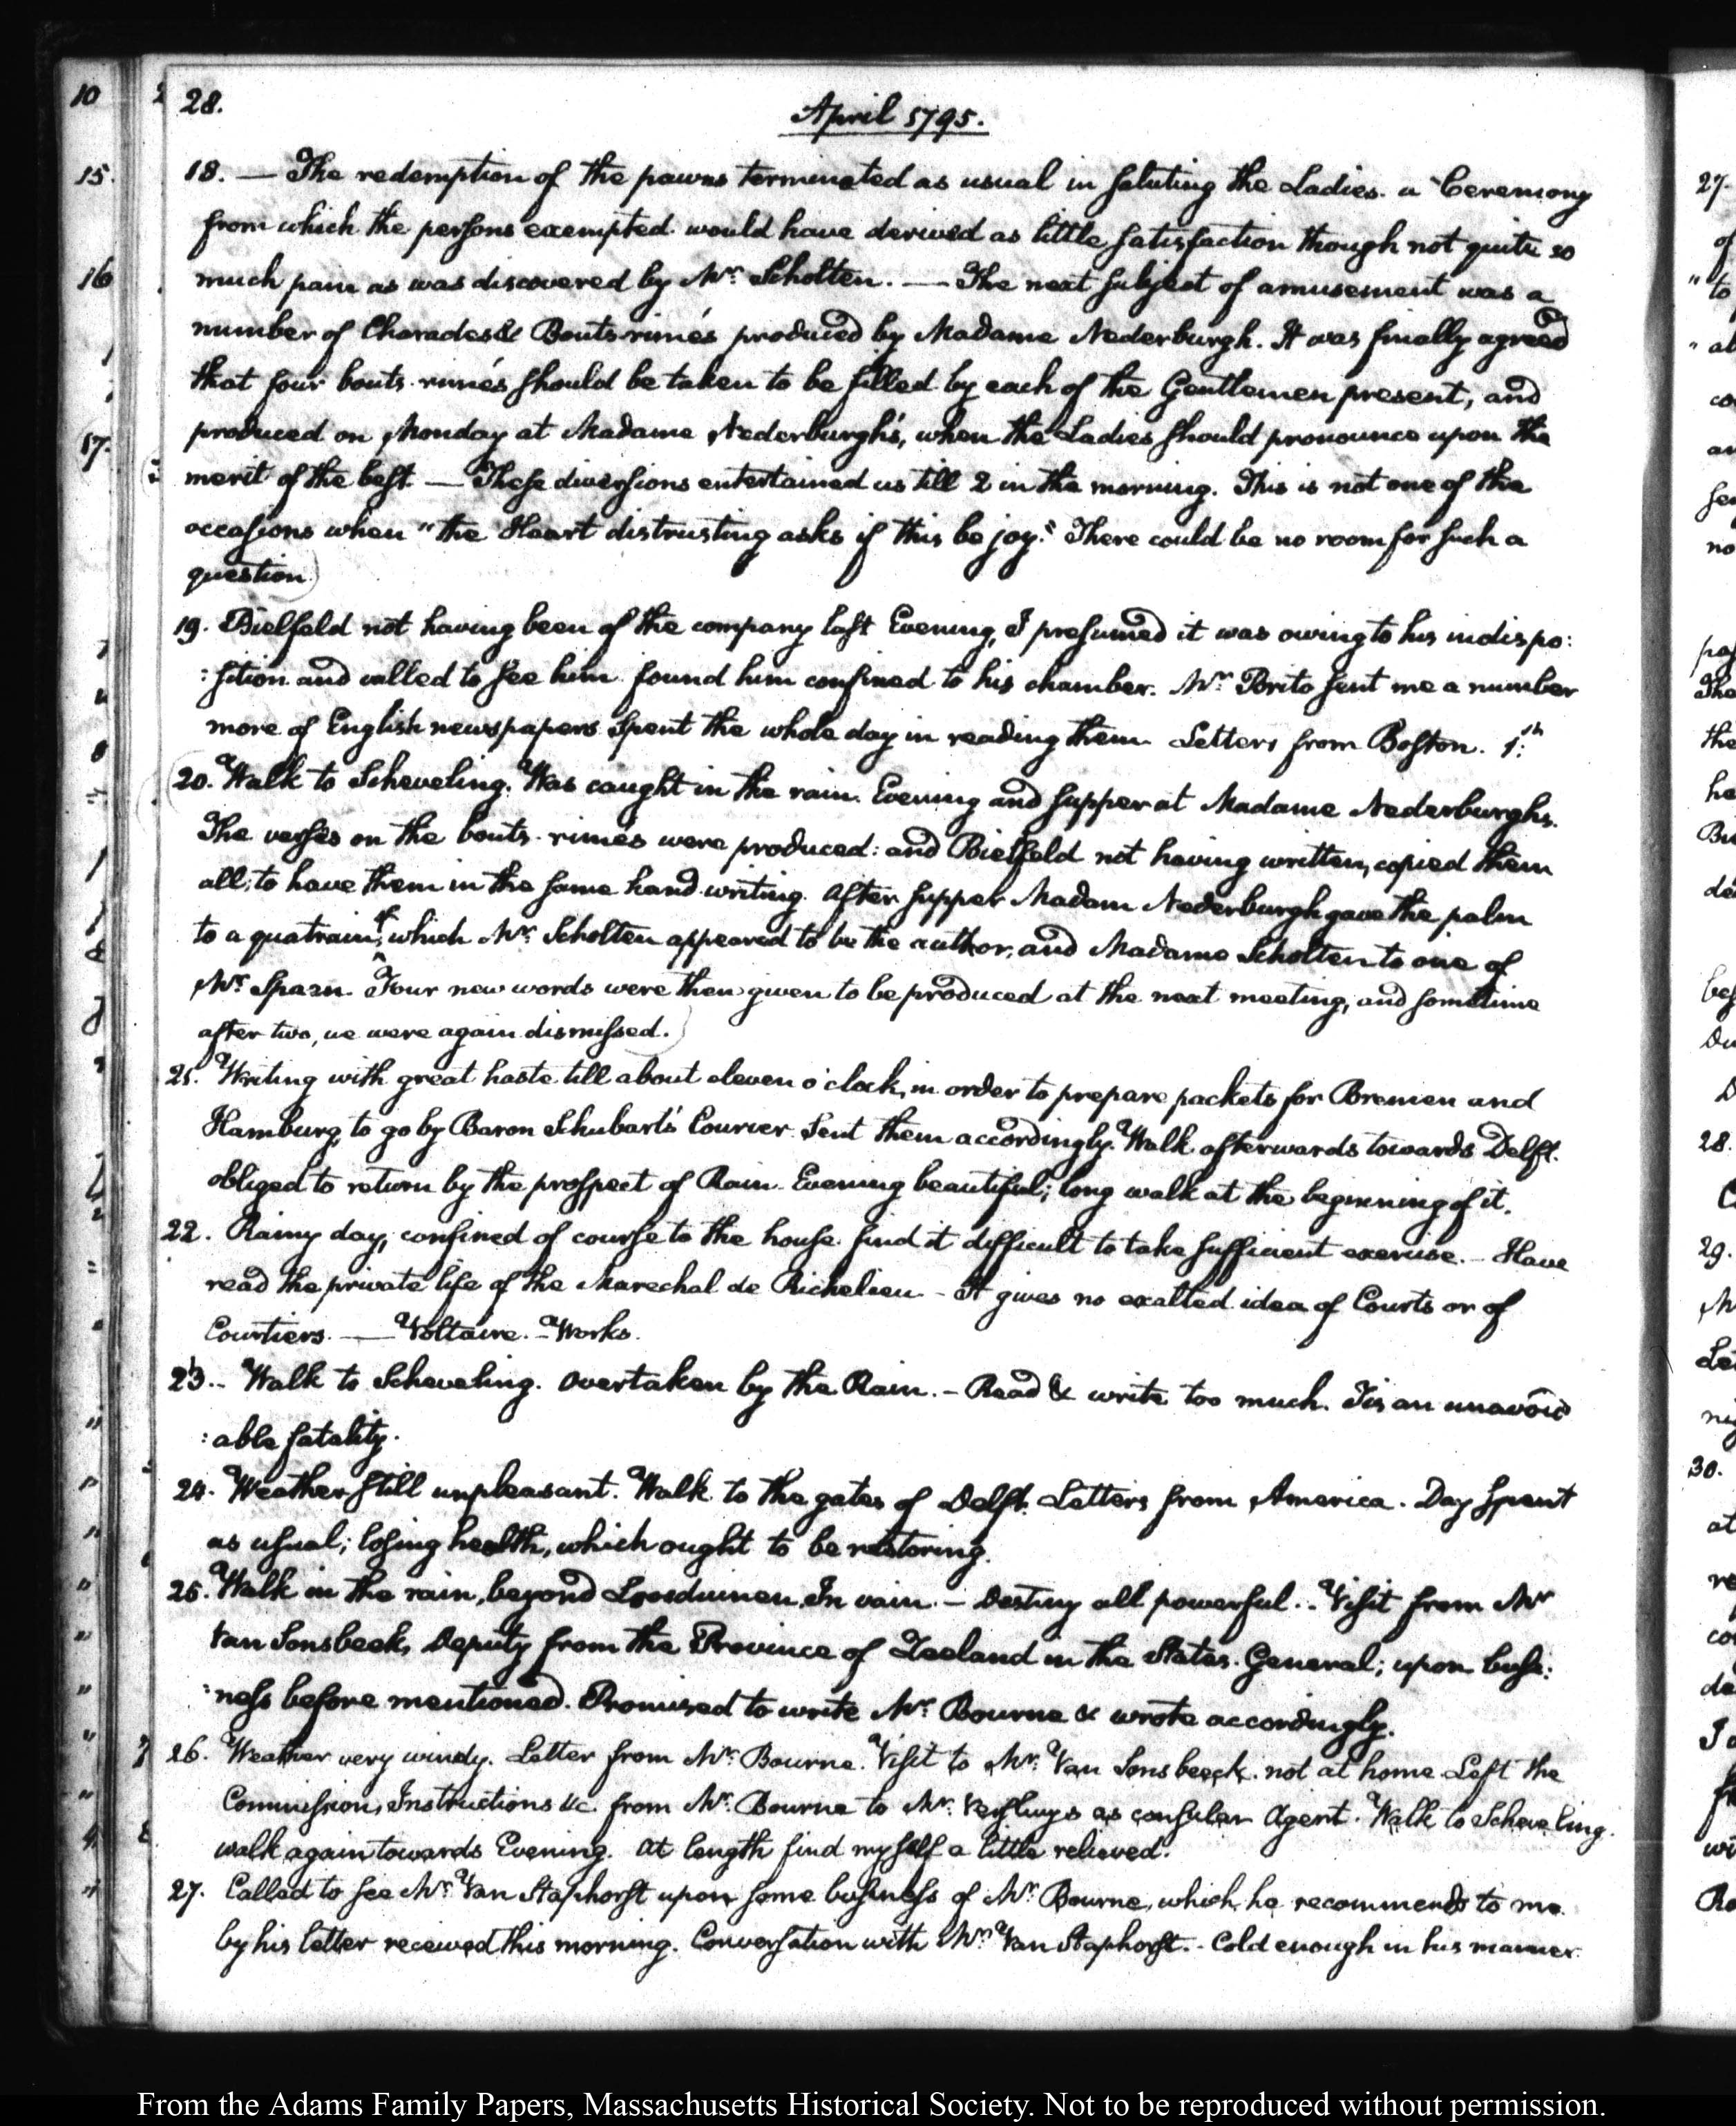 28.
April 1795.
18. — The redemption of the pawns terminated as usual in saluting the Ladies. a Ceremony
from which the persons exempted would have derived as little satisfaction though not quite so
much pain as was discovered by Mr. Scholten. — The next subject of amusement was a
number of Charades & Bouts-rimés produced by Madame Nederburgh. It was finally agreed
that four bouts-rimés should be taken to be filled by each of the Gentlemen present, and
produced on Monday at Madame Nederburgh's, when the Ladies should pronounce upon the
merit of the best — These diversions entertained us till 2 in the morning. This is not one of the
occasions when "the Heart distrusting asks if this be joy." There could be no room for such a
question.
19. Bielfeld not having been of the company last Evening, I presumed it was owing to his indispo:
:sition and called to see him found him confined to his chamber. Mr. Brito sent me a number
more of English newspapers Spent the whole day in reading them. Letters from Boston.
20. Walk to Scheveling. Was caught in the rain. Evening and supper at Madame Nederburghs.
The verses on the bouts-rimés were produced: and Bielfeld not having written, copied them
all, to have them in the same hand-writing. After supper Madam Nederburgh gave the palm
to a quatrain, of which Mr. Scholten appeared to be the author, and Madame Scholten to one of
Mr. Spaan. Four new words were then given to be produced at the next meeting, and sometime
after two, we were again dismissed.
21. Writing with great haste till about eleven o'clock, in order to prepare packets for Bremen and
Hamburg, to go by Baron Schubart's Courier. Sent them accordingly. Walk afterwards towards Delft.
obliged to return by the prospect of Rain. Evening beautiful; long walk at the beginning of it.
22. Rainy day, confined of course to the house. find it difficult to take sufficient exercise. — Have
read the private life of the Marechal de Richelieu — It gives no exalted idea of Courts or of
Courtiers. — Voltaire. — Works.
23. - Walk to Scheveling. Overtaken by the Rain. — Read & write too much. Tis an unavoid
:able fatality.
24. Weather still unpleasant. Walk to the gates of Delft. Letters from America. Day spent
as usual; losing health, which ought to be restoring.
25. Walk in the rain, beyond Loosduinen. In vain. — Destiny all powerful. - Visit from Mr
Van Sonsbeek, Deputy from the Province of Zeeland in the States-General; upon busi:
:ness before mentioned. Promised to write Mr. Bourne & wrote accordingly.
26. Weather very windy. Letter from Mr. Bourne. Visit to Mr. Van Sonsbeeck. not at home. Left the
Commission, Instructions &c. from Mr. Bourne to Mr. as consular Agent. Walk to Scheveling.
walk again towards Evening. At length find myself a little relieved.
27. Called to see Mr. Van Staphorst upon some business of Mr. Bourne, which he recommends to me
by his letter received this morning. Conversation with Mr. Van Staphorst. - Cold enough in his manner.
From the Adams Family Papers, Massachusetts Historical Society. Not to be reproduced without permission.